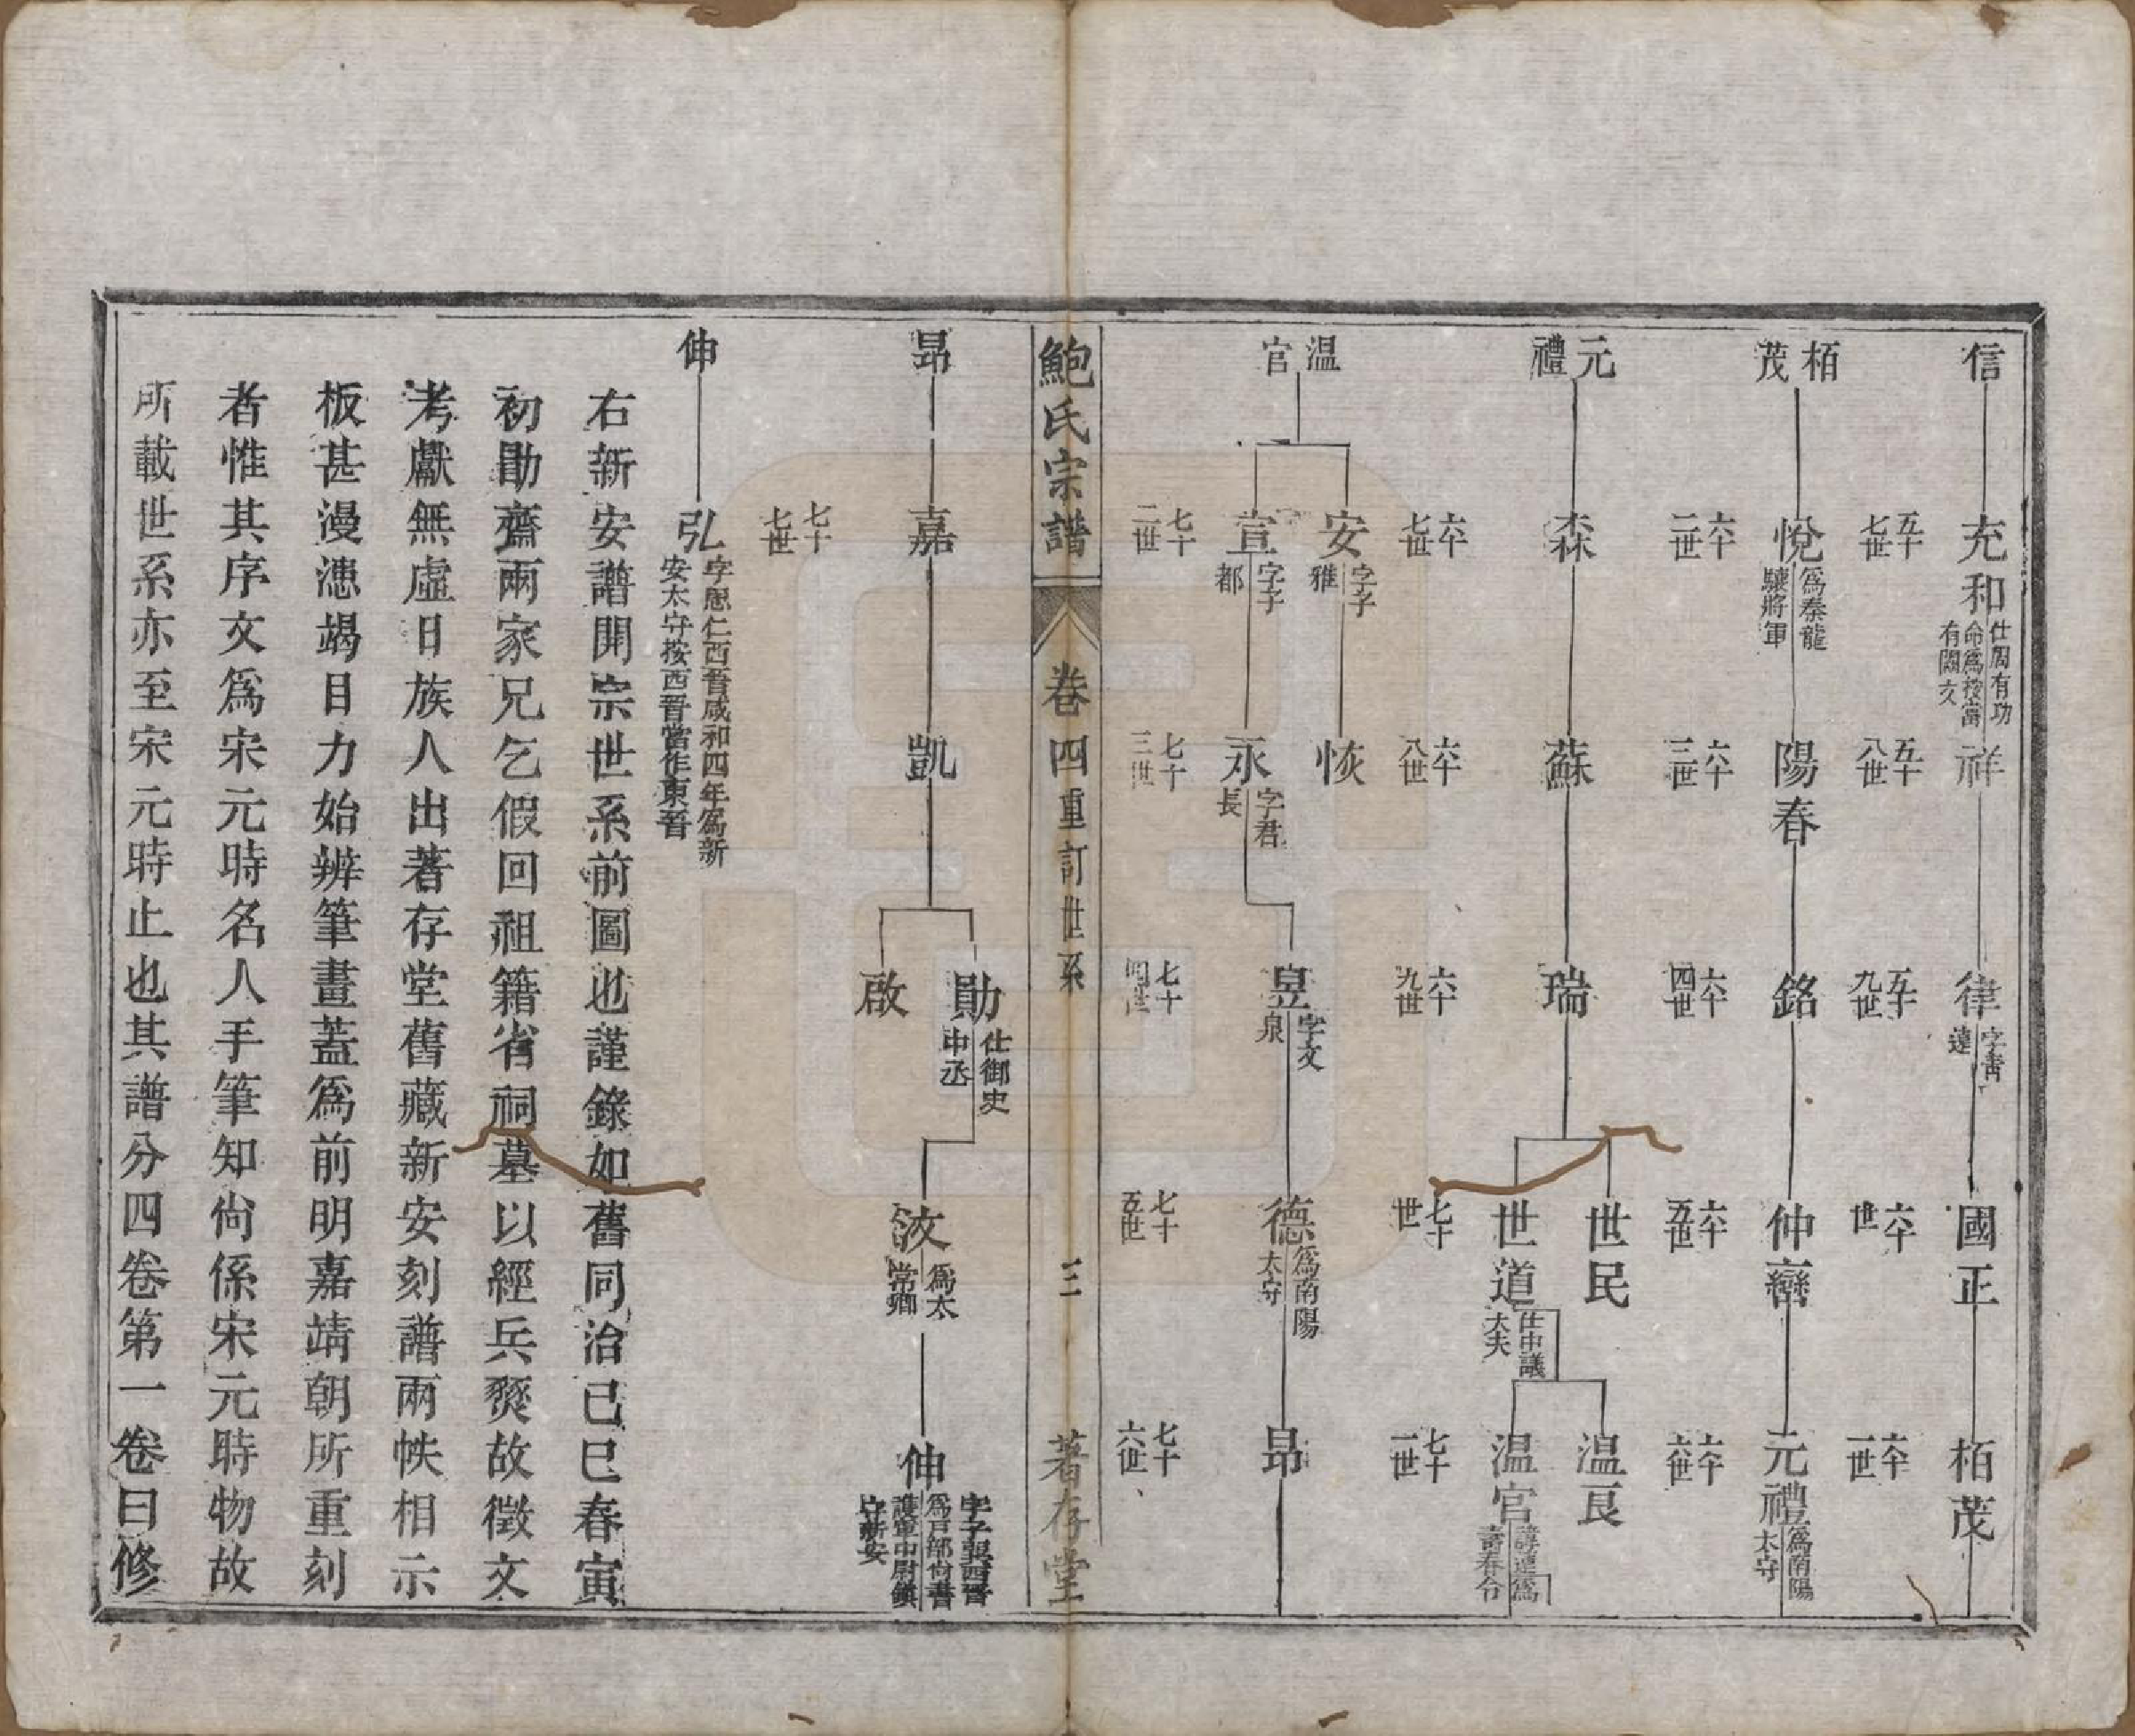 信
充和
仕周有功
命爲按當
有闕文
祥
律
字青
達
國正
栢茂
五十七世
五十八世
五十九世
六十世
六十一世
栢茂
悅
爲秦龍
驤將軍
陽春
銘
仲巒
元禮
爲南陽
太守
六十二世
六十三世
六十四世
六十五世
六十六世
元禮
森
蘇
瑞
世民
世道
仕中議
大夫
温良
温官
諱達爲
壽春令
六十七世
六十八世
六十九世
七十世
七十一世
温官
安
字子
雅
恢
宣
字子
都
永
字君
長
昱
字文
泉
德
爲南陽
太守
昂
七十二世
七十三世
七十四世
七十五世
七十六世
鮑氏宗譜
卷四重訂世系
三
著存堂
昂
嘉
凱
勛
仕御史
中丞
啟
波
爲太
常卿
伸
字子巽西晉
爲戸部尙書
護軍中尉鎮
守新安
七十七世
伸
弘
字思仁西晉咸和四年爲新
安太守按西晉當作東晉
右新安譜開宗世系前圖也謹錄如舊同治己巳春寅
初勖齋兩家兄乞假回祖籍省祠墓以經兵燹故徵文
考獻無虛日族人出著存堂舊藏新安刻譜兩帙相示
板甚漫漶竭目力始辨筆畫蓋爲前明嘉靖朝所重刻
者惟其序文爲宋元時名人手筆知尙係宋元時物故
所載世系亦至宋元時止也其譜分四卷第一卷曰修